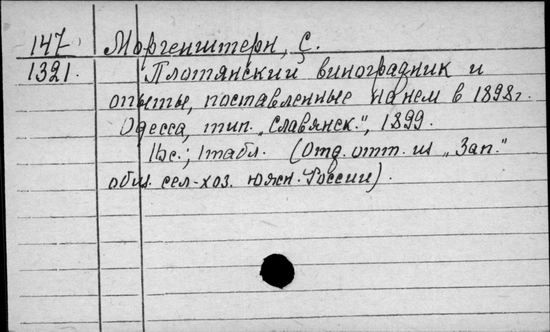 147 Моргенштерн, С.
1321. Плотянский виноградник и
опыты, поставленные на нем в 1898г.
Одесса, тип. „Славянск.", 1899.
с.; 1табл. (Отд. отт. из „Зап."
общ. сел-хоз. южн. России).